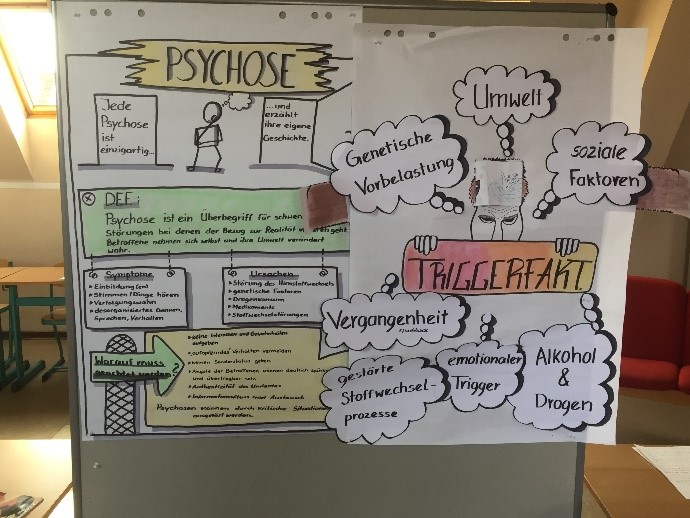 PSYCHOSE
Jede
Psychose
ist
einzigartig...
...und
erzählt
ihre eigene
Geschichte.
DEF.:
Psychose ist ein Überbegriff für
Störungen bei denen der Bezug zur Realität
Betroffene nehmen sich selbst und ihre Umwelt verändert
wahr.
Symptome
Einbildung(en)
Stimmen/Dinge hören
Verfolgungswahn
desorganisiertes Denken,
Sprechen, Verhalten
Ursachen
Störung des Hirnstoffwechsels
genetische Faktoren
Drogenkonsum
Medikamente
Stoffwechselstörungen
Worauf muss
geachtet werden
?
aufgeben
Verhalten vermeiden
keinen geben
Ängste der Betroffenen werden deutlich
und übertragen sich
Authentizität des
Informationsfluss und Austausch
Psychosen können durch kritische
ausgelöst werden.
Umwelt
Genetische
Vorbelastung
soziale
Faktoren
TRIGGERFAKT.
Vergangenheit
gestörte
Stoffwechsel-
prozesse
emotionaler
Trigger
Alkohol
&
Drogen